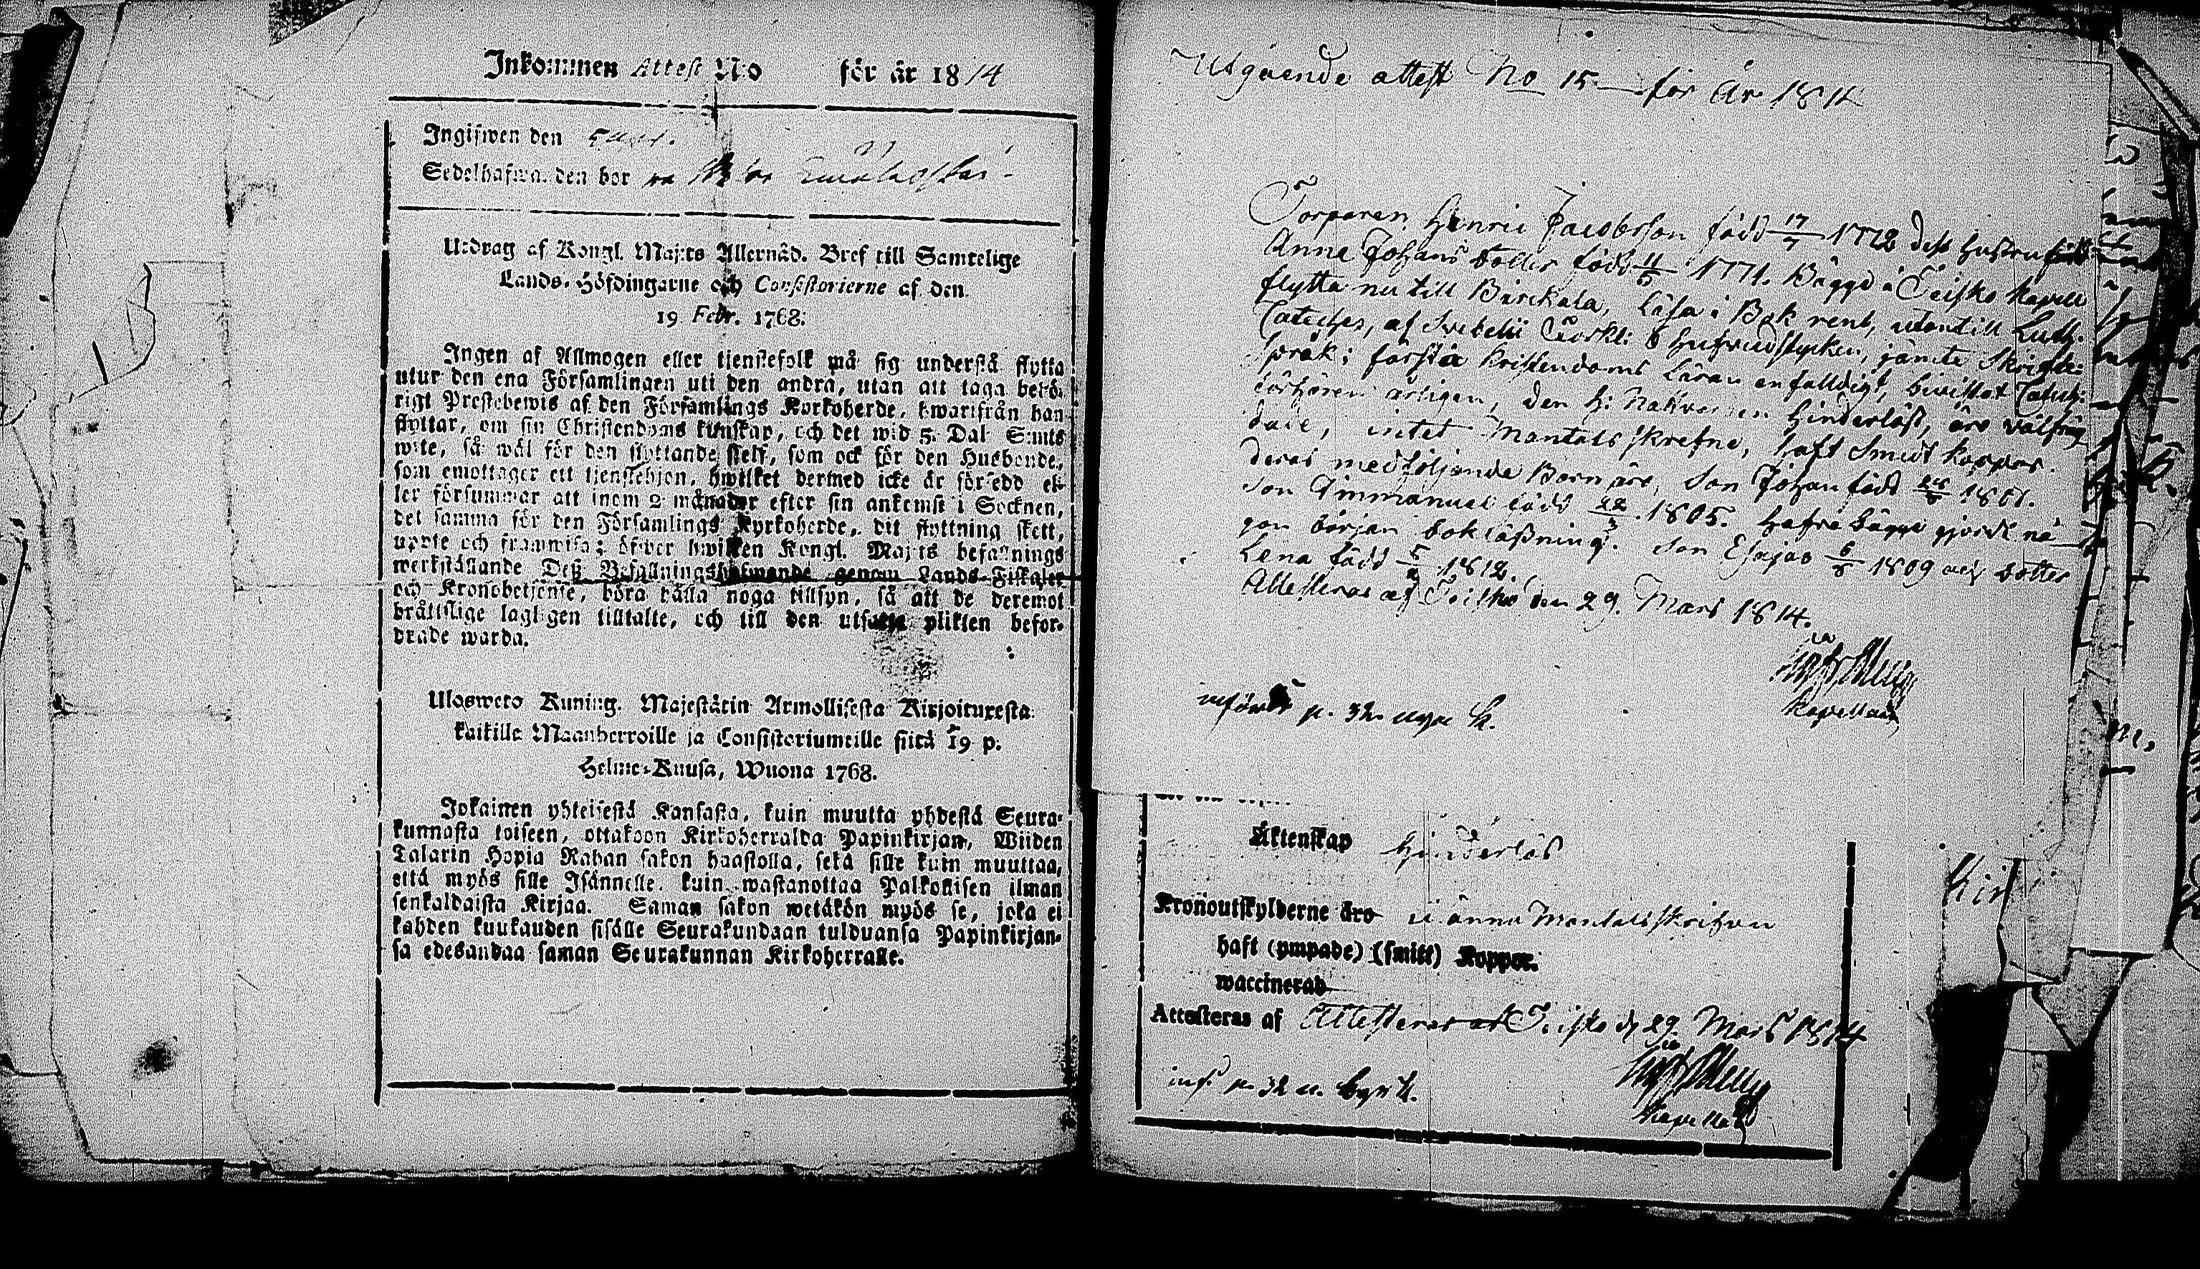 Inkommen Attest No för år 1814
Ingifwen den
Sedelhafwanden bor
Utdrag af Kongl. Maj:ts Allernåd. Bref till Samtelige
Lands-Höfdingarne och Consistorierne af den
19 Febr. 1768:
Ingen af Allmogen eller tjenstefolk må sig understå flytta
utur den ena Församlingen uti den andra, utan att taga behö-
rigt Prestebewis af den Församlings Kyrkoherde, hwarifrån han
flyttar, om sin Christendoms kunskap, och det wid 5. Dal. S:mts
wite, så wäl för den flyttande sjelf, som ock för den Husbonde,
som emottager ett tjenstehjon, hwilket dermed icke är försedd el-
ler försummar att inom 2 månader efter sin ankomst i Socknen,
det samma för den Församlings Kyrkoherde, dit flyttning skett,
uppte och framwisa; öfwer hwilken Kongl. Maj:ts befallnings
werkställande Deß Befallningshafwande genom Lands-Fiskaler
och Kronobetjente, böra hålla noga tillsyn, så att de deremot
brättslige lagligen tilltalte, och till den utsatte plikten befor-
drade warda.
Ulosweto Kuning. Majestätin Armollisesta Kirjoituxesta
kaikille Maanherroille ja Consistoriumeille siitä 19 p.
Helme-Kuusa, Wuona 1768.
Jokainen yhteisestä Kansasta, kuin muutta yhdestä Seura-
kunnasta toiseen, ottakoon Kirkoherralda Papinkirjan, Wiiden
Talarin Hopia Rahan sakon haastolla, sekä sille kuin muuttaa,
että myös sille Isännelle, kuin wastanottaa Palkollisen ilman
senkaldaista Kirjaa. Saman sakon wetäkön myös se, joka ei
kahden kuukauden sisälle Seurakundaan tulduansa Papinkirjan-
sa edesandaa saman Seurakunnan Kirkoherralle.
Utgående attest No 15 för År 1814
Torparen Henric Jacobsson född 17/7 1772 dess hustru
Anna Johans dotter född 11/5 1771. Bägge i Teisko Kapell
flytta nu till Birckala, Läsa i Bok rent, utantill Luth.
Cateches, af Svebelii förkl: 8 hufvudstycken, jämte Skrifte:
språk; förstå kristendoms Läran enfalldigt, bivistat Catech:
förhören årligen, den h: Nattvarden Hinderlöst, äro välfräg
dade, intet Mantals skrefne, haft Smitt koppor.
Deras medföljande Barn äro, Son Johan född 1801.
Son Immanuel född 22/3 1805. hafva bägge gjordt nå
gon början bokläßning. Son Esajas 6/8 1809 och dotter
Lena född 1812.
Attesteras af Teisko den 29. Mars 1814.
Kapellan
införd p. 32
Äktenskap Hinderlös
Kronoutskylderne äro ei ännu Mantalsskrifven
haft (ympade) (smitt) Koppor.
waccinerad
Attesteras af Attesteras af Teisko d 29. Mars 1814
Kapellan
inf. p. 32